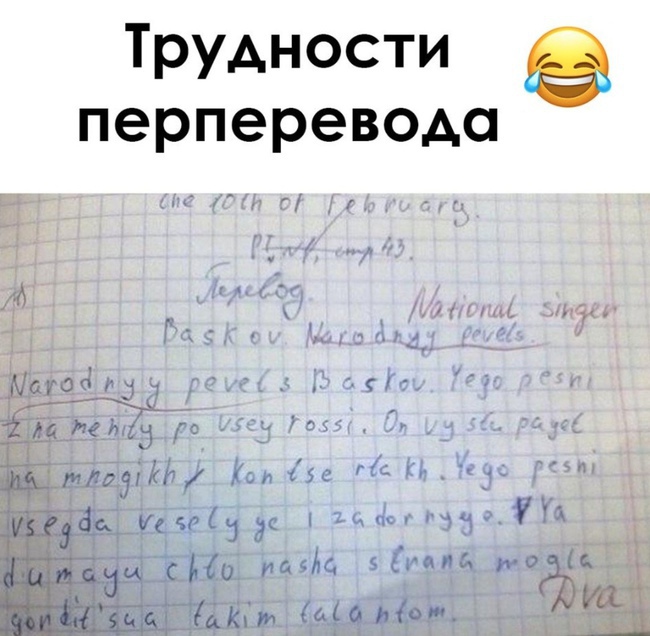 Трудности
перперевода
the 10th of February.
стр 43.
Перевод.
National singer
Baskov Narodnyy pevets.
Narodnyy pevets Baskov. Yego pesni
znamenity po vsey rossi. On vystupayet
na mnogikh kontsertakh. Yego pesni
vsegda veselyye i zadornyye. Ya
dumayu chto nasha strana mogla
gordit'sua takim talantom.
Dva